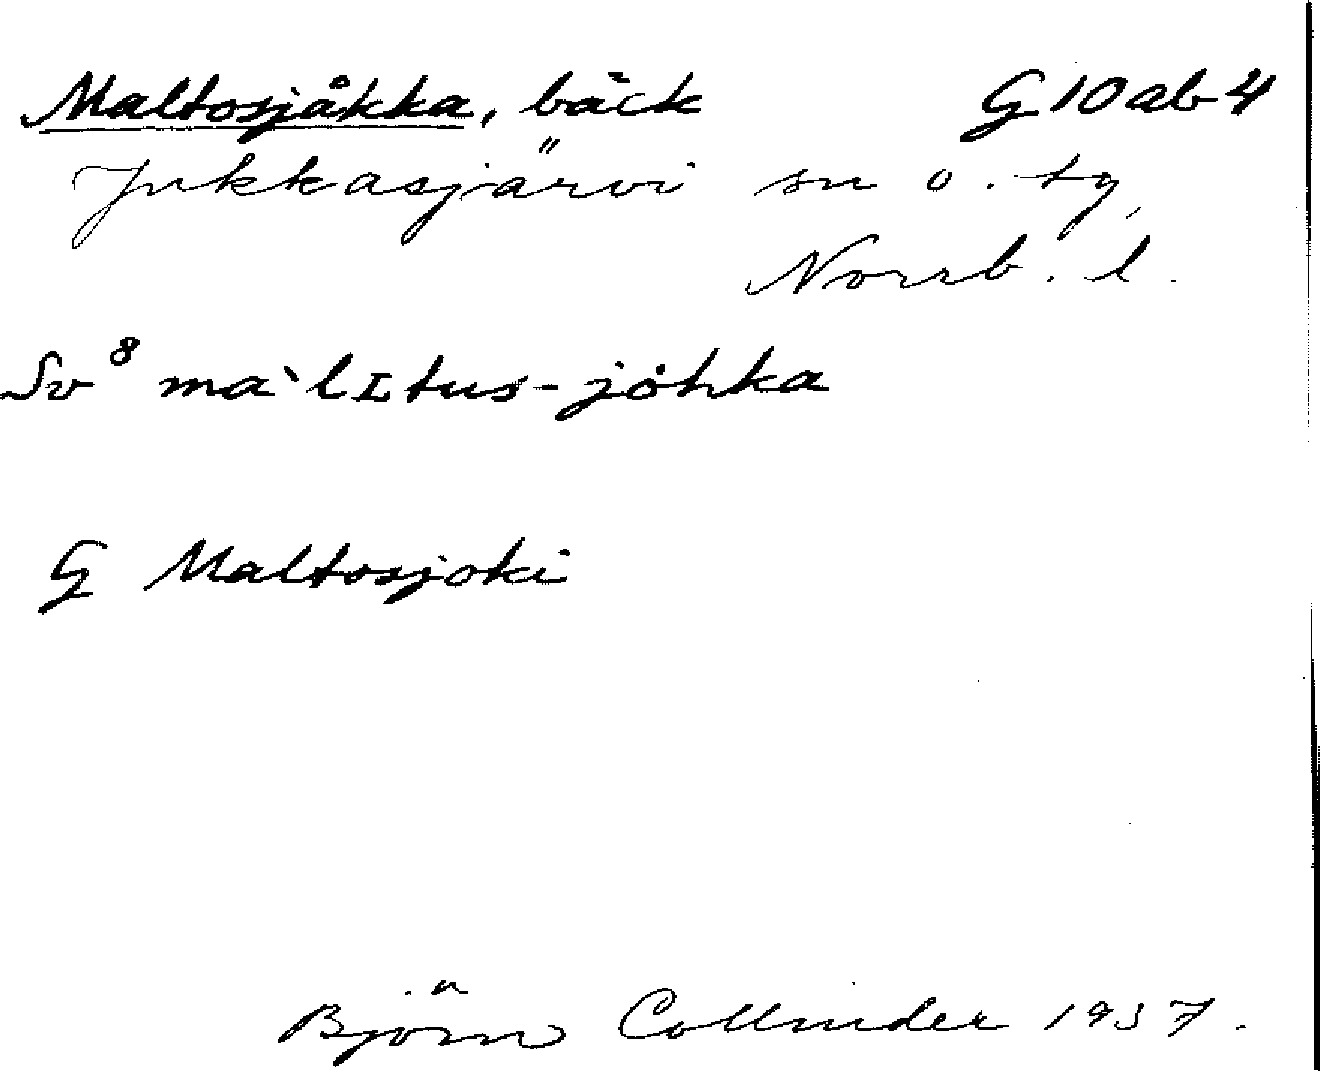 Maltosjåkka, bäck G 10 ab 4
Jukkasjärvi sn o. tg,
Norrb. l.
Sv⁸ ma`lɪtus-jȯhka
G Maltosjoki
Björn Collinder 1937.